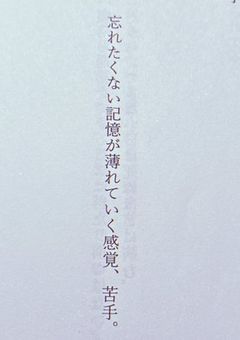 忘れたくない記憶が薄れていく感覚、苦手。